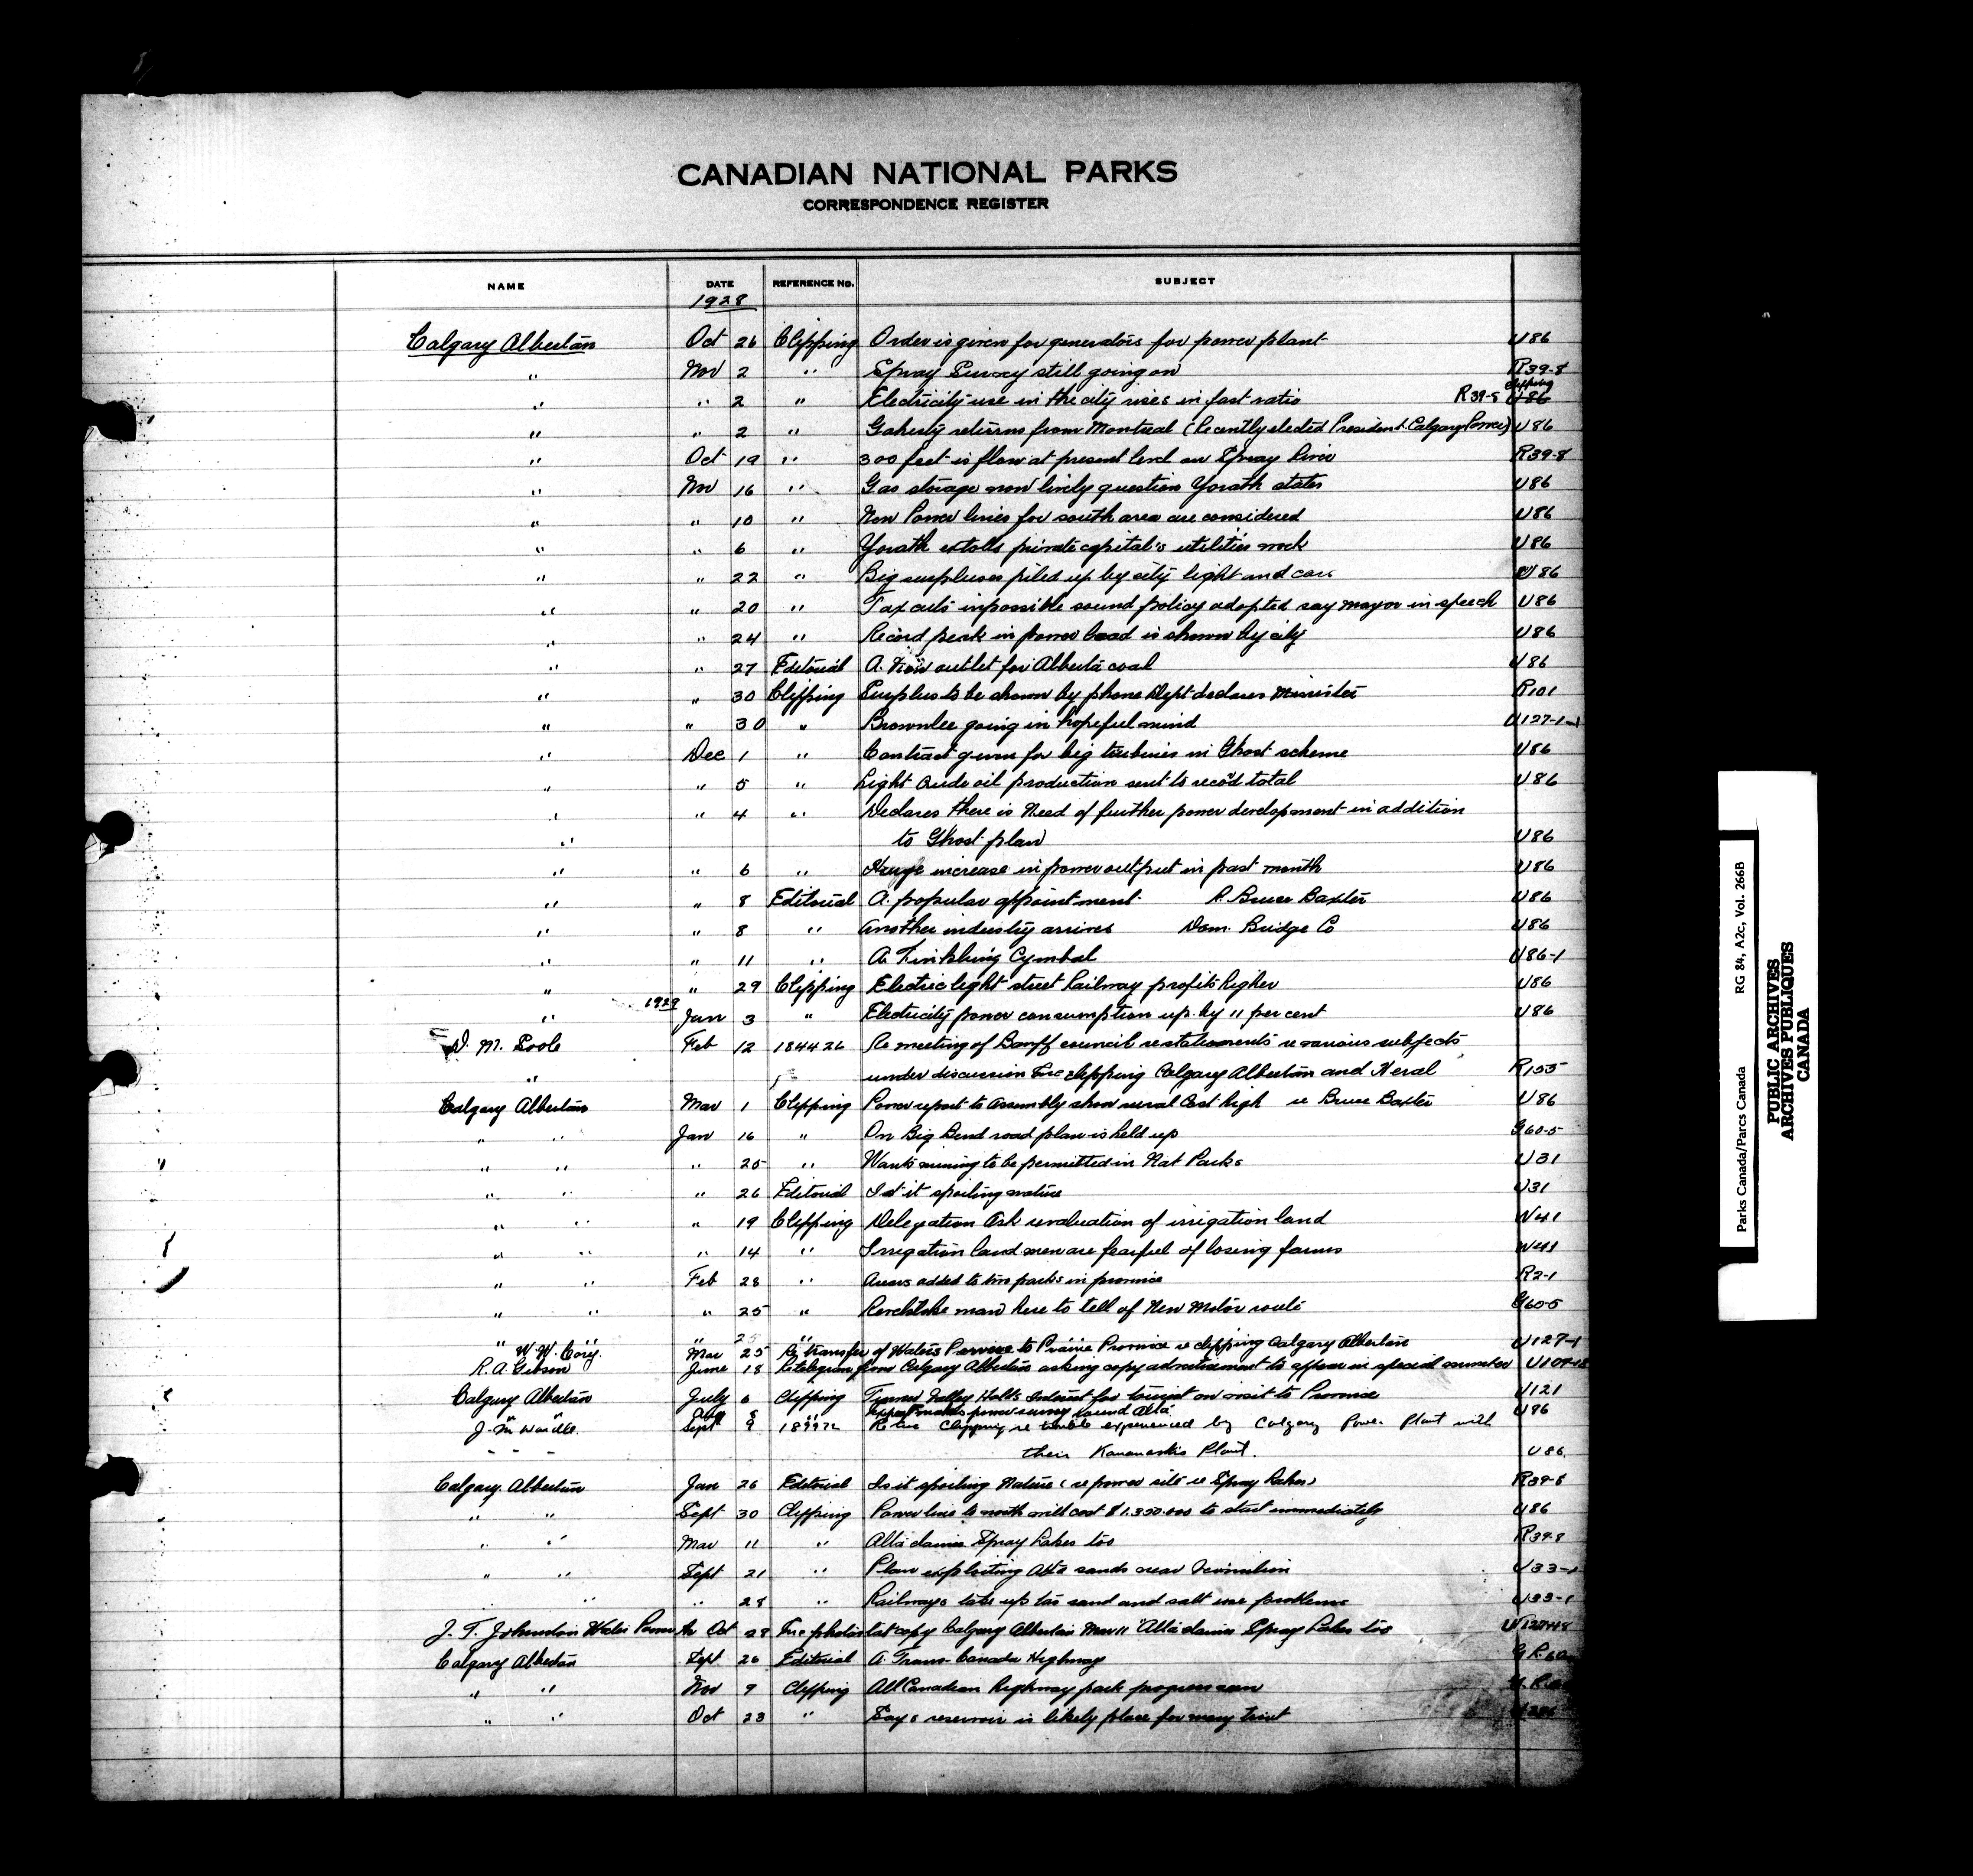 CANADIAN NATIONAL PARKS
CORRESPONDENCE REGISTER
NAME DATE REFERENCE No. SUBJECT
1928
Calgary Albertan Oct 26 Clipping Order is given for generators for power plant U86
" Nov 2 " Spray Survey still going on R39-8
" " 2 " Electricity use in the city rises in fast ratio R39-8 clipping U86
" " 2 " Gaherty returns from Montreal (Recently elected President Calgary Power) U86
" Oct 19 " 300 feet is flow at present level on Spray River R39-8
" Nov 16 " Gas storage now lively question Yorath states U86
" " 10 " New Power lines for south area are considered U86
" " 6 " Yorath extolls private capital's utilities work U86
" " 22 " Big surpluses piled up by city light and cars U86
" " 20 " Tax cuts inpossible sound policy adopted say mayor in speech U86
" " 24 " Record peak in power load is shown by city U86
" " 27 Editorial A New outlet for Alberta coal U86
" " 30 Clipping Surplus to be shown by phone Dept declares Minister R101
" " 30 " Brownlee going in hopeful mind U127-1-1
" Dec 1 " Contract given for big turbines in Ghost scheme U86
" " 5 " Light Crude oil production sent to rec'd total U86
" " 4 " Declares there is Need of further power development in addition
" to Ghost plan U86
" " 6 " Huge increase in power output in past month U86
" " 8 Editorial A popular appointment R. Bruce Baxter U86
" " 8 " Another industry arrives Dom. Bridge Co U86
" " 11 " A Tinkling Cymbal U86-1
" " 29 Clipping Electric light street Railway profits higher U86
1929
" Jan 3 " Electricity power consumption up by 11 per cent U86
D. M. Soole Feb 12 184426 Re meeting of Banff council re statements re various subjects
" under discussion Inc clipping Calgary Albertan and Heral R155
Calgary Albertan Mar 1 Clipping Power report to Assembly show rural Cost high re Bruce Baxter U86
" " Jan 16 " On Big Bend road plan is held up G60-5
" " " 25 " Wants mining to be permitted in Nat Parks U31
" " " 26 Editorial Is it spoiling nature U31
" " " 19 Clipping Delegation Ask revaluation of irrigation land W41
" " " 14 " Irrigation land men are fearful of losing farms W41
" " Feb 28 " Areas added to two parks in province R2-1
" " " 25 " Revelstoke man here to tell of New Motor route G60-5
" " " 25 "
W. W. Cory Mar 25 Re transfer of Waters Powers to Prairie Province re clipping Calgary Albertan U127-1
R. A. Gibson June 18 Re telegram from Calgary Albertan asking copy advertisement to appear in special number U109-18
Calgary Albertan July 6 Clipping Turner Valley Holds Interest for tourist on visit to Province U121
" " Aug 8 " power survey round Alta U86
J. M. Wardle Sept 9 189972 Re inc Clipping re trouble experienced by Calgary Power Plant with
" " " their Kananaskis Plant. U86.
Calgary Albertan Jan 26 Editorial Is it spoiling Nature (re power site re Spray Lakes) R39-8
" " Sept 30 Clipping Power line to north will cost $1.350.000 to start immediately U86
" " Mar 11 " Alta claims Spray Lakes too R39-8
" " Sept 21 " Plan exploiting Alta sands near U33-1
" " " 28 " Railways take up tar sand and salt use problems U33-1
J. T. Johnston Water Power Br Oct 28 Inc photostat copy Calgary Albertan Mar 11 "Alta claims Spray Lakes too
Calgary Albertan Sept 26 Editorial A Trans-Canada Highway
" " Nov 9 Clipping All Canadian highway park progress
" " Oct 23 " Says reservoir is likely place for many trout
Parks Canada/Parcs Canada RG 84, A2c, Vol. 266B
PUBLIC ARCHIVES
ARCHIVES PUBLIQUES
CANADA